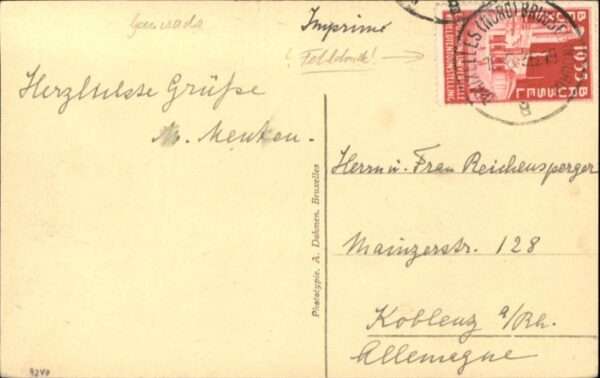 Imprimé
! Felldruck! →
Herzlichste Grüße
M. Menken.
Herrn u. Frau Reichensperger
Mainzerstr. 128
Koblenz a/Rh.
Allemagne
Phototypie. A. Dohmen, Bruxelles
BRUXELLES (NORD) BRUSSEL
1935